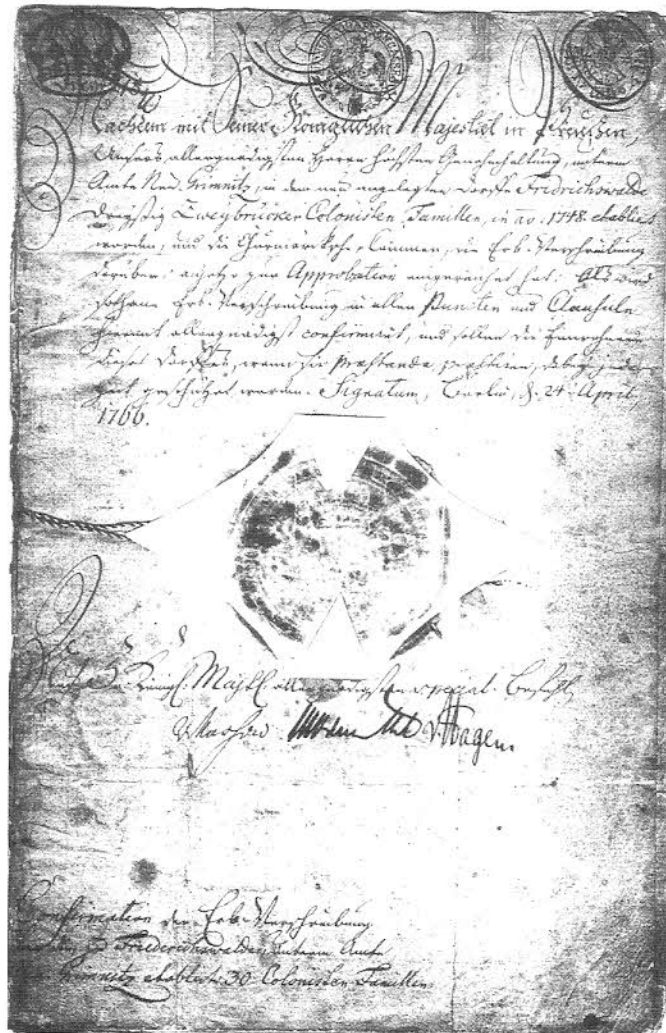 Nachdem mit Seiner Königlichen Majestät in Preußen,
Unsers allergnädigsten Herrn höchsten Genehmhaltung, unterm
Amte Neu-Grimnitz, in dem neu angelegten Dorffe Fridrichswalde
Dreyßig Zweybrücker Colonisten Familien, in ao. 1748. etablirt
worden, und die Churmärcksche Cammer, die Erb-Verschreibung
darüber, zur Approbation eingereichet hat: Als wird
sothane Erb-Verschreibung in allen Puncten und Clausuln
hiermit allergnädigst confirmiret, und sollen die Einwohner
dieses Dorffes, wenn sie praestanda praestiren, dabey jeder
Zeit geschützet werden. Signatum, Berlin, d. 24. April,
1766.
Königl. Majest. allergnädigsten Special-Befehl
v. Hagen
Confirmation der Erb-Verschreibung
zu Friederichswalde, unterm Amte
Grimnitz etablirte 30 Colonisten Familien